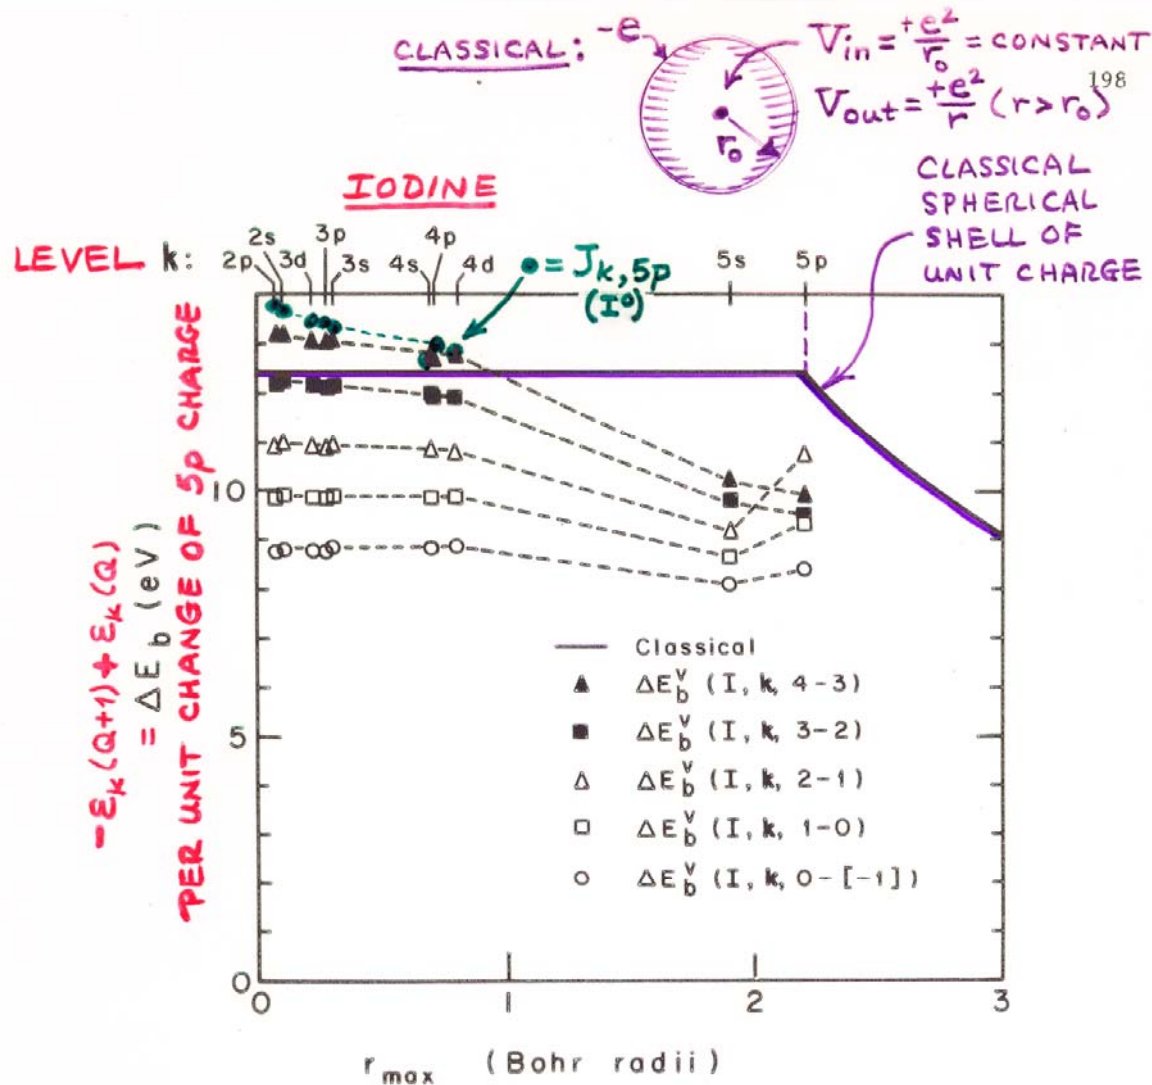 CLASSICAL: -e
V_in = +e²/r₀ = CONSTANT
V_out = +e²/r (r > r₀)
198
r₀
CLASSICAL
SPHERICAL
SHELL OF
UNIT CHARGE
IODINE
LEVEL k:
2s 3p 4p
2p 3d 3s 4s 4d 5s 5p
● = J_k,5p
(I⁰)
-ε_k(Q+1) + ε_k(Q)
= ΔE_b (eV)
PER UNIT CHANGE OF 5p CHARGE
10
5
0
Classical
▲ ΔE_b^v (I, k, 4-3)
■ ΔE_b^v (I, k, 3-2)
△ ΔE_b^v (I, k, 2-1)
□ ΔE_b^v (I, k, 1-0)
○ ΔE_b^v (I, k, 0-[-1])
0 1 2 3
r_max (Bohr radii)